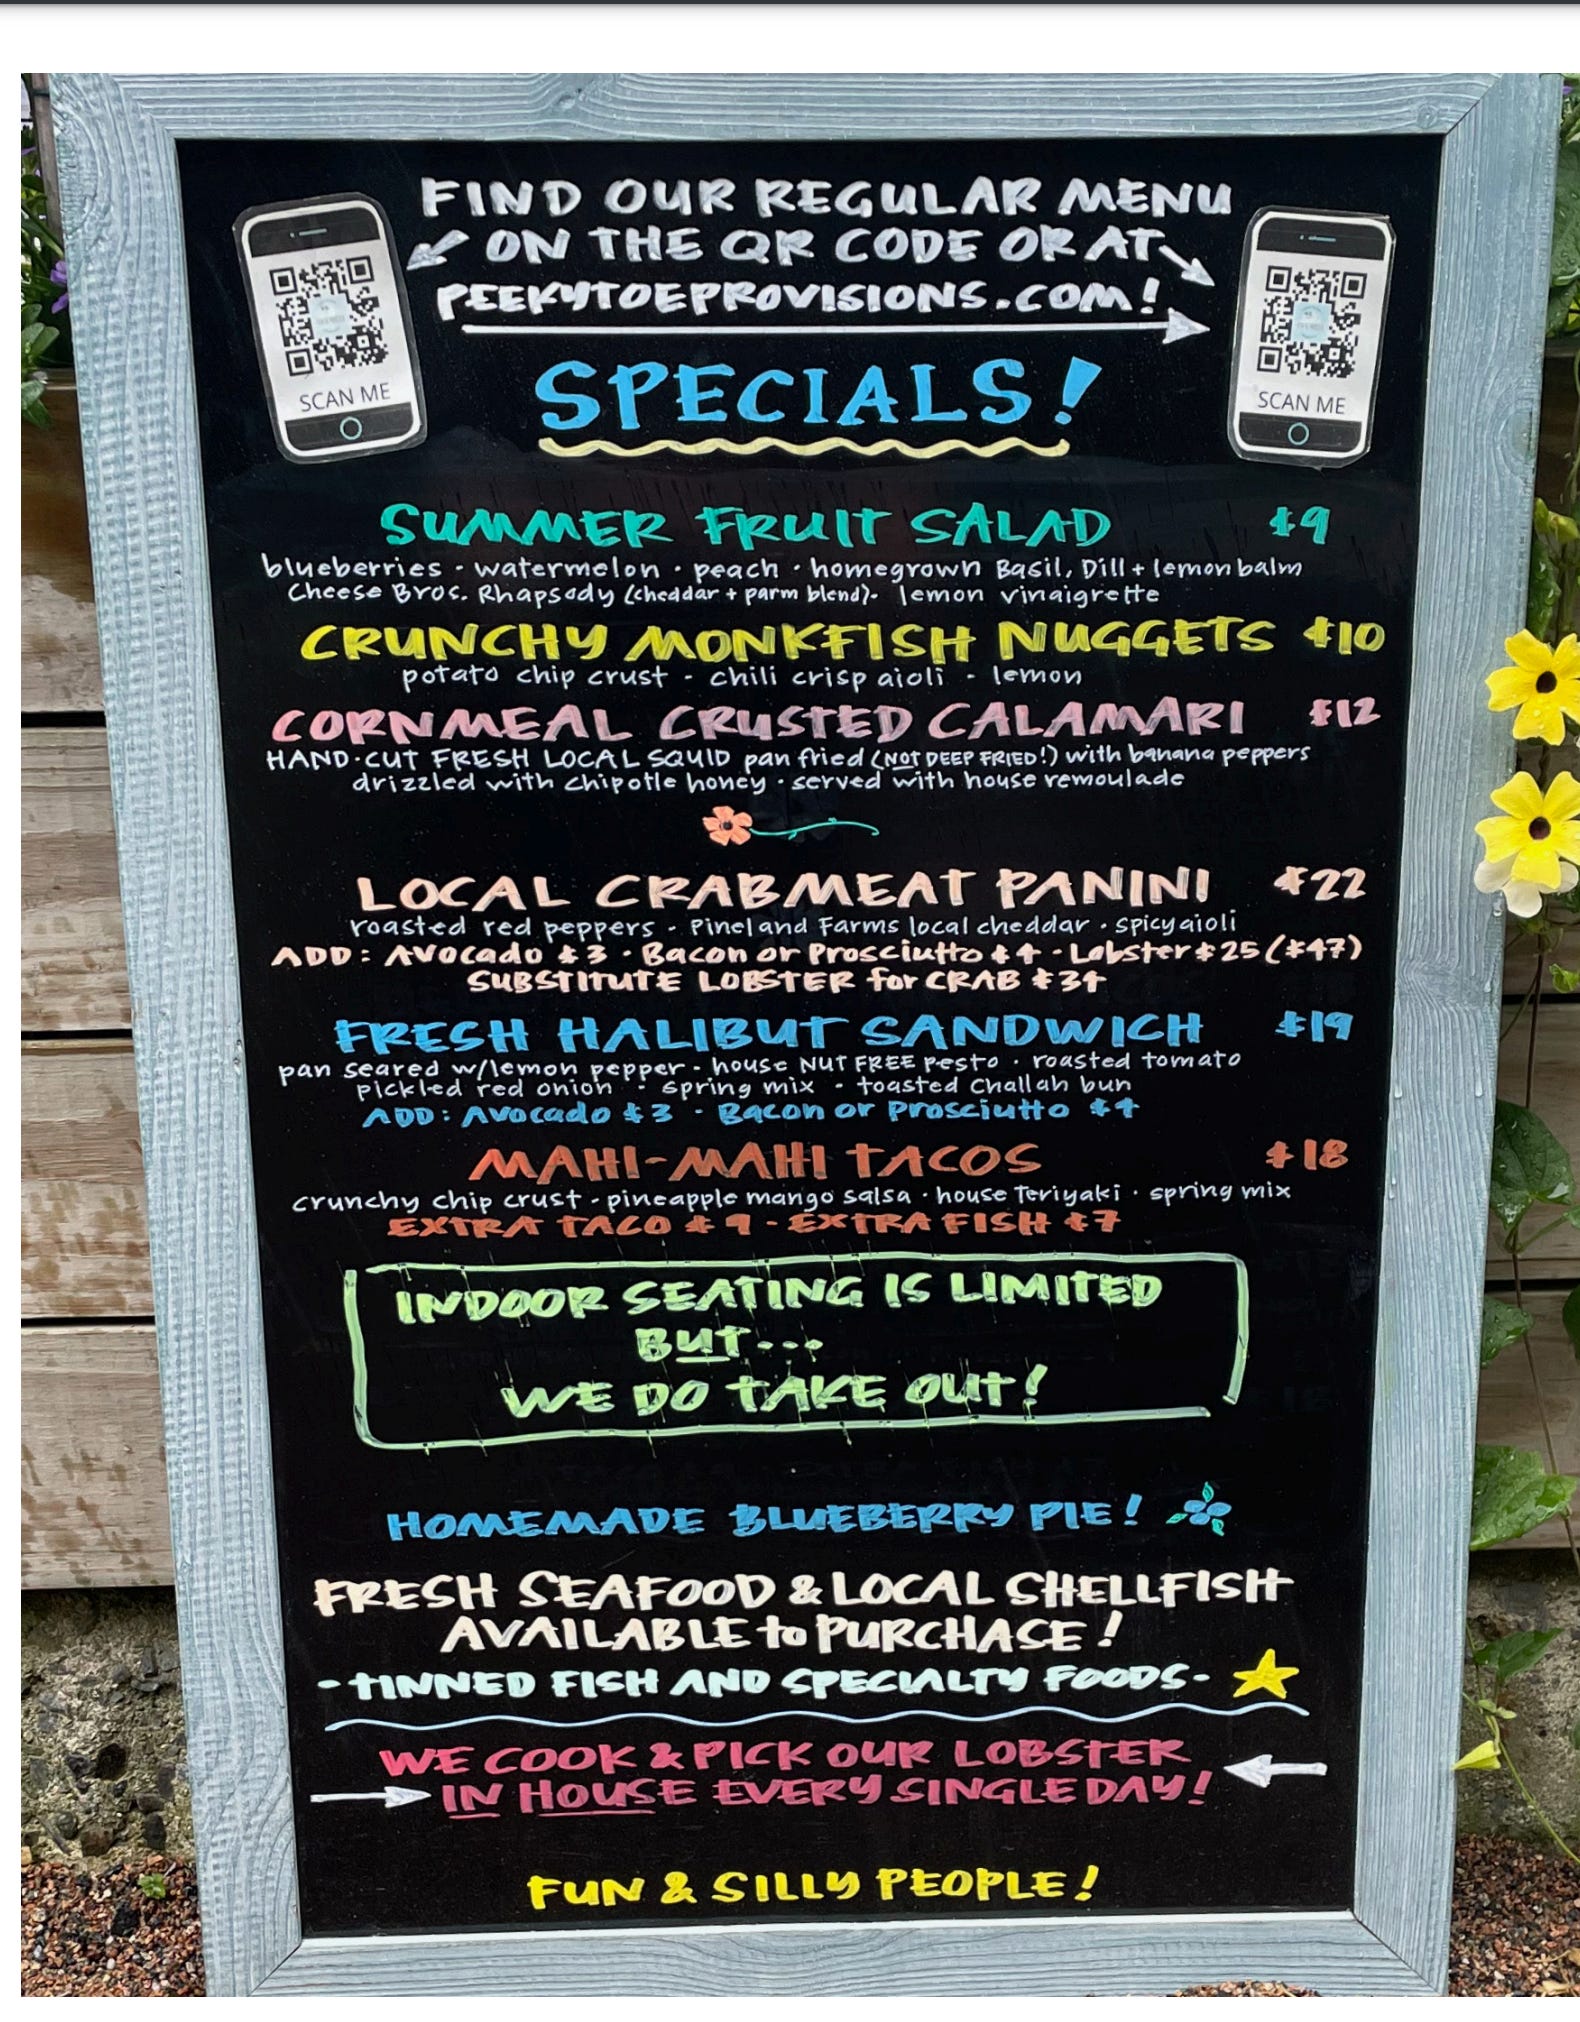 FIND OUR REGULAR MENU
ON THE QR CODE OR AT
PEEKYTOEPROVISIONS.COM!
SCAN ME
SCAN ME
SPECIALS!
SUMMER FRUIT SALAD $9
blueberries · watermelon · peach · homegrown Basil, Dill + lemon balm
Cheese Bros. Rhapsody (cheddar + parm blend) · lemon vinaigrette
CRUNCHY MONKFISH NUGGETS $10
potato chip crust - chili crisp aioli - lemon
CORNMEAL CRUSTED CALAMARI $12
HAND-CUT FRESH LOCAL SQUID pan fried (NOT DEEP FRIED!) with banana peppers
drizzled with chipotle honey · served with house remoulade
LOCAL CRABMEAT PANINI $22
roasted red peppers · Pineland Farms local cheddar · spicy aioli
ADD: Avocado $3 · Bacon or Prosciutto $4 - Lobster $25 ($47)
SUBSTITUTE LOBSTER for CRAB $34
FRESH HALIBUT SANDWICH $19
pan seared w/lemon pepper - house NUT FREE pesto · roasted tomato
pickled red onion · spring mix · toasted challah bun
ADD: Avocado $3 · Bacon or Prosciutto $4
MAHI-MAHI TACOS $18
crunchy chip crust - pineapple mango salsa · house Teriyaki · spring mix
EXTRA TACO $9 - EXTRA FISH $7
INDOOR SEATING IS LIMITED
BUT...
WE DO TAKE OUT!
HOMEMADE BLUEBERRY PIE!
FRESH SEAFOOD & LOCAL SHELLFISH
AVAILABLE to PURCHASE!
-TINNED FISH AND SPECIALTY FOODS-
WE COOK & PICK OUR LOBSTER
IN HOUSE EVERY SINGLE DAY!
FUN & SILLY PEOPLE!